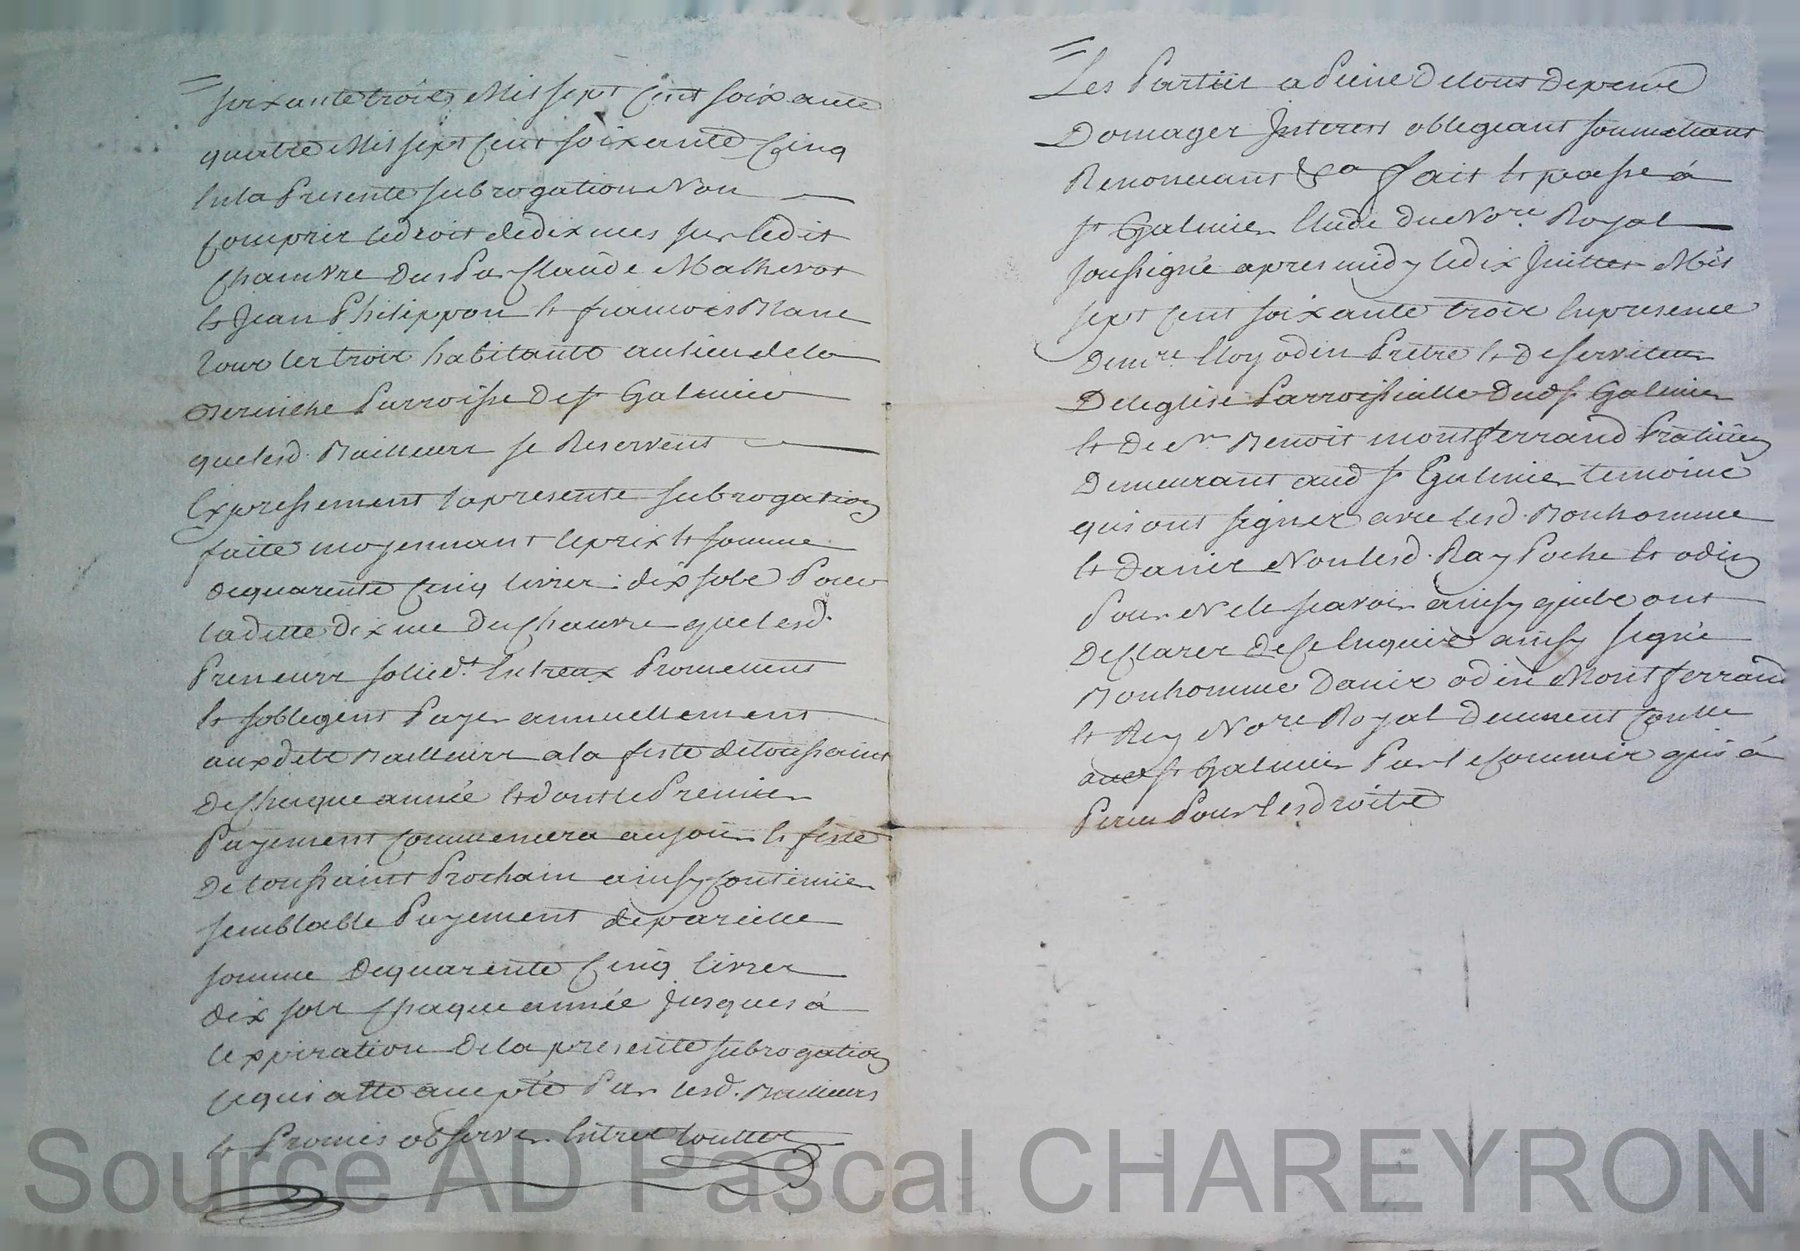 soixante trois Mil sept Cent soixante
quatre Mil sept Cent soixante Cinq
En la Presente subrogation Non
Compris le droit de dixmes sur le dit
Chanvre Dus Par Claude Mathevot
et Jean Philippon et francois Blanc
tous les trois habitants au lieu de la
Parroisse De st Galmier
que lesd. Bailleurs se Reservent
Expressement la presente subrogation
faite moyennant le prix et somme
de quarente Cinq livres dix sols Pour
la ditte dixme De Chanvre que lesd.
Preneurs sollid.t Entreux Promettent
et soblegent Payer annuellement
aux dits Bailleurs a la feste de toussaint
De Chaque année et dont le Premier
Payement Commencera au jour et feste
De toussaint Prochain ainsy Continuer
semblable Payement de pareille
somme De quarente Cinq livres
dix sols Chaque année jusques à
lexpiration De la presente subrogation
Ce qui a ette accepté Par lesd. Bailleurs
et Promis observer Entre touttes
Les Parties a Peine De tous Depens
Domages Interest oblegeant soumettant
Renonceant &a fait et passe á
st Galmier Etude du No.re Royal
soussigné apres midy le dix Juillet Mil
sept Cent soixante trois En presence
De m.re Eloy odin Prêtre et Deserviteur
De leglise Parroissialle Dud st Galmier
et De s.r Benoit montferrand Praticien
Demeurant aud st Galmier temoins
qui ont signés avec lesd. Bonhomme
et Danis Non lesd. Ray Poche et odin
Pour Ne le scavoir ainsy quils ont
Declarer De Ce Enquis ainsy signé
Bonhomme Danis odin Montferrand
et Rey No.re Royal Duement Controllé
aud st Galmier Par le Commis qui á
Percu Pour les droits
Source AD Pascal CHAREYRON